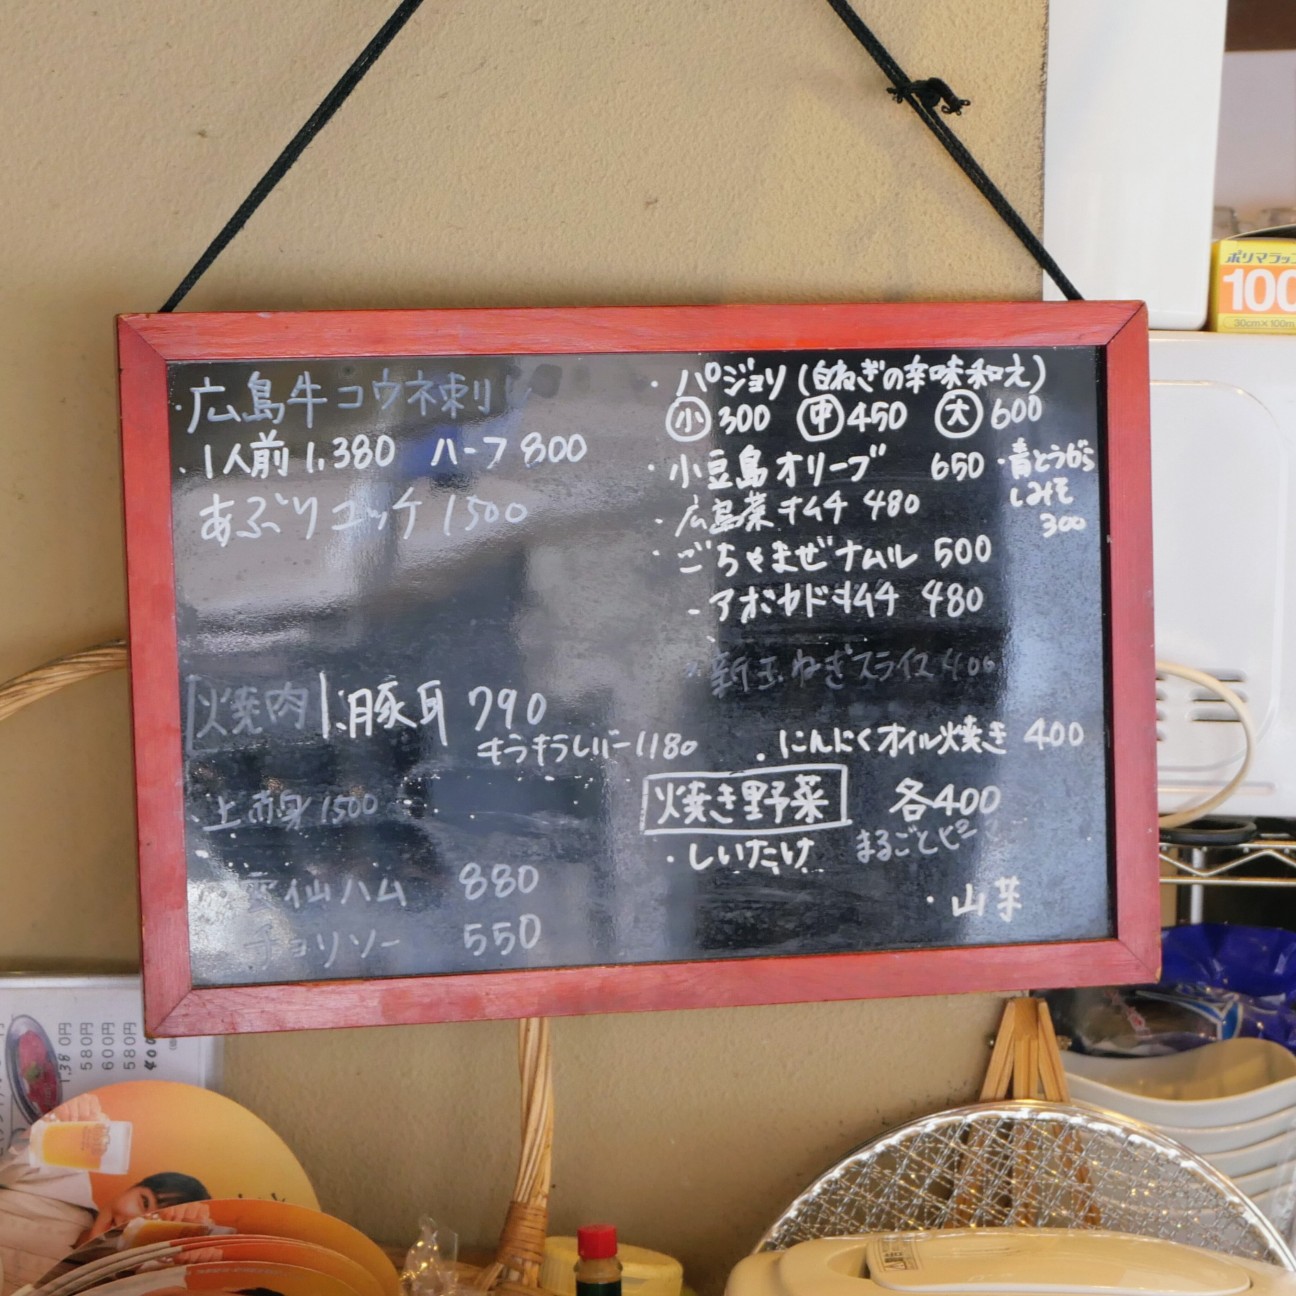 ・広島牛コウネ刺し
・1人前 1,380 ハーフ 800
あぶりユッケ 1500
焼肉 ・豚耳 790
キラキラレバー 1180
上赤身 1500
雲仙ハム 880
チョリソー 550
・パジョリ(白ねぎの辛味和え)
小 300 中 450 大 600
・小豆島オリーブ 650
・広島菜キムチ 480
・ごちゃまぜナムル 500
・アボカドキムチ 480
・新玉ねぎスライス 400
・青とうがらしみそ
300
・にんにくオイル焼き 400
焼き野菜 各400
・しいたけ まるごとピー
・山芋
ポリマラップ
100
30cm×100m
580円
600円
580円